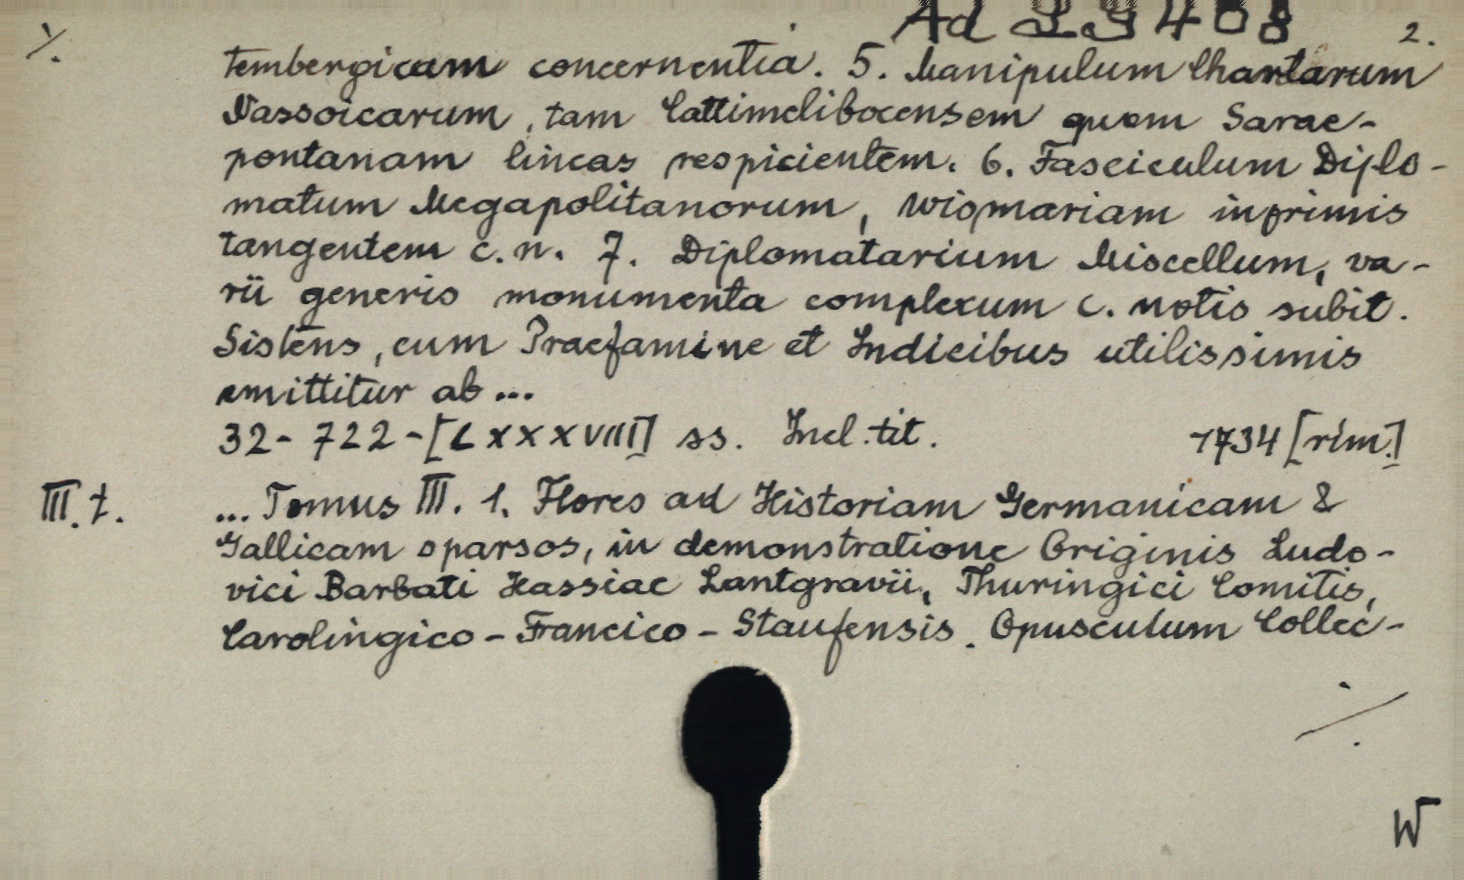 2.
·/.
tembergicam concernentia. 5. Manipulum Chartarum
Nassoicarum, tam Cattimelibocensem quam Sarae-
pontanam lineas respicientem. 6. Fasciculum Diplo-
matum Megapolitanorum, Wismariam inprimis
tangentem c. n. 7. Diplomatarium Miscellum, va-
rii generis monumenta complexum c. notis subit.
Sistens, cum Praefamine et Indicibus utilissimis
emittitur ab ...
32 - 722 - [LXXXVIII] ss. Incl. tit. 1734 [rim.]
III. t. ... Tomus III. 1. Flores ad Historiam Germanicam &
Gallicam sparsos, in demonstratione Originis Ludo-
vici Barbati Hassiae Lantgravii, Thuringici Comitis,
Carolingico - Francico - Staufensis. Opusculum Collec-
·/.
W